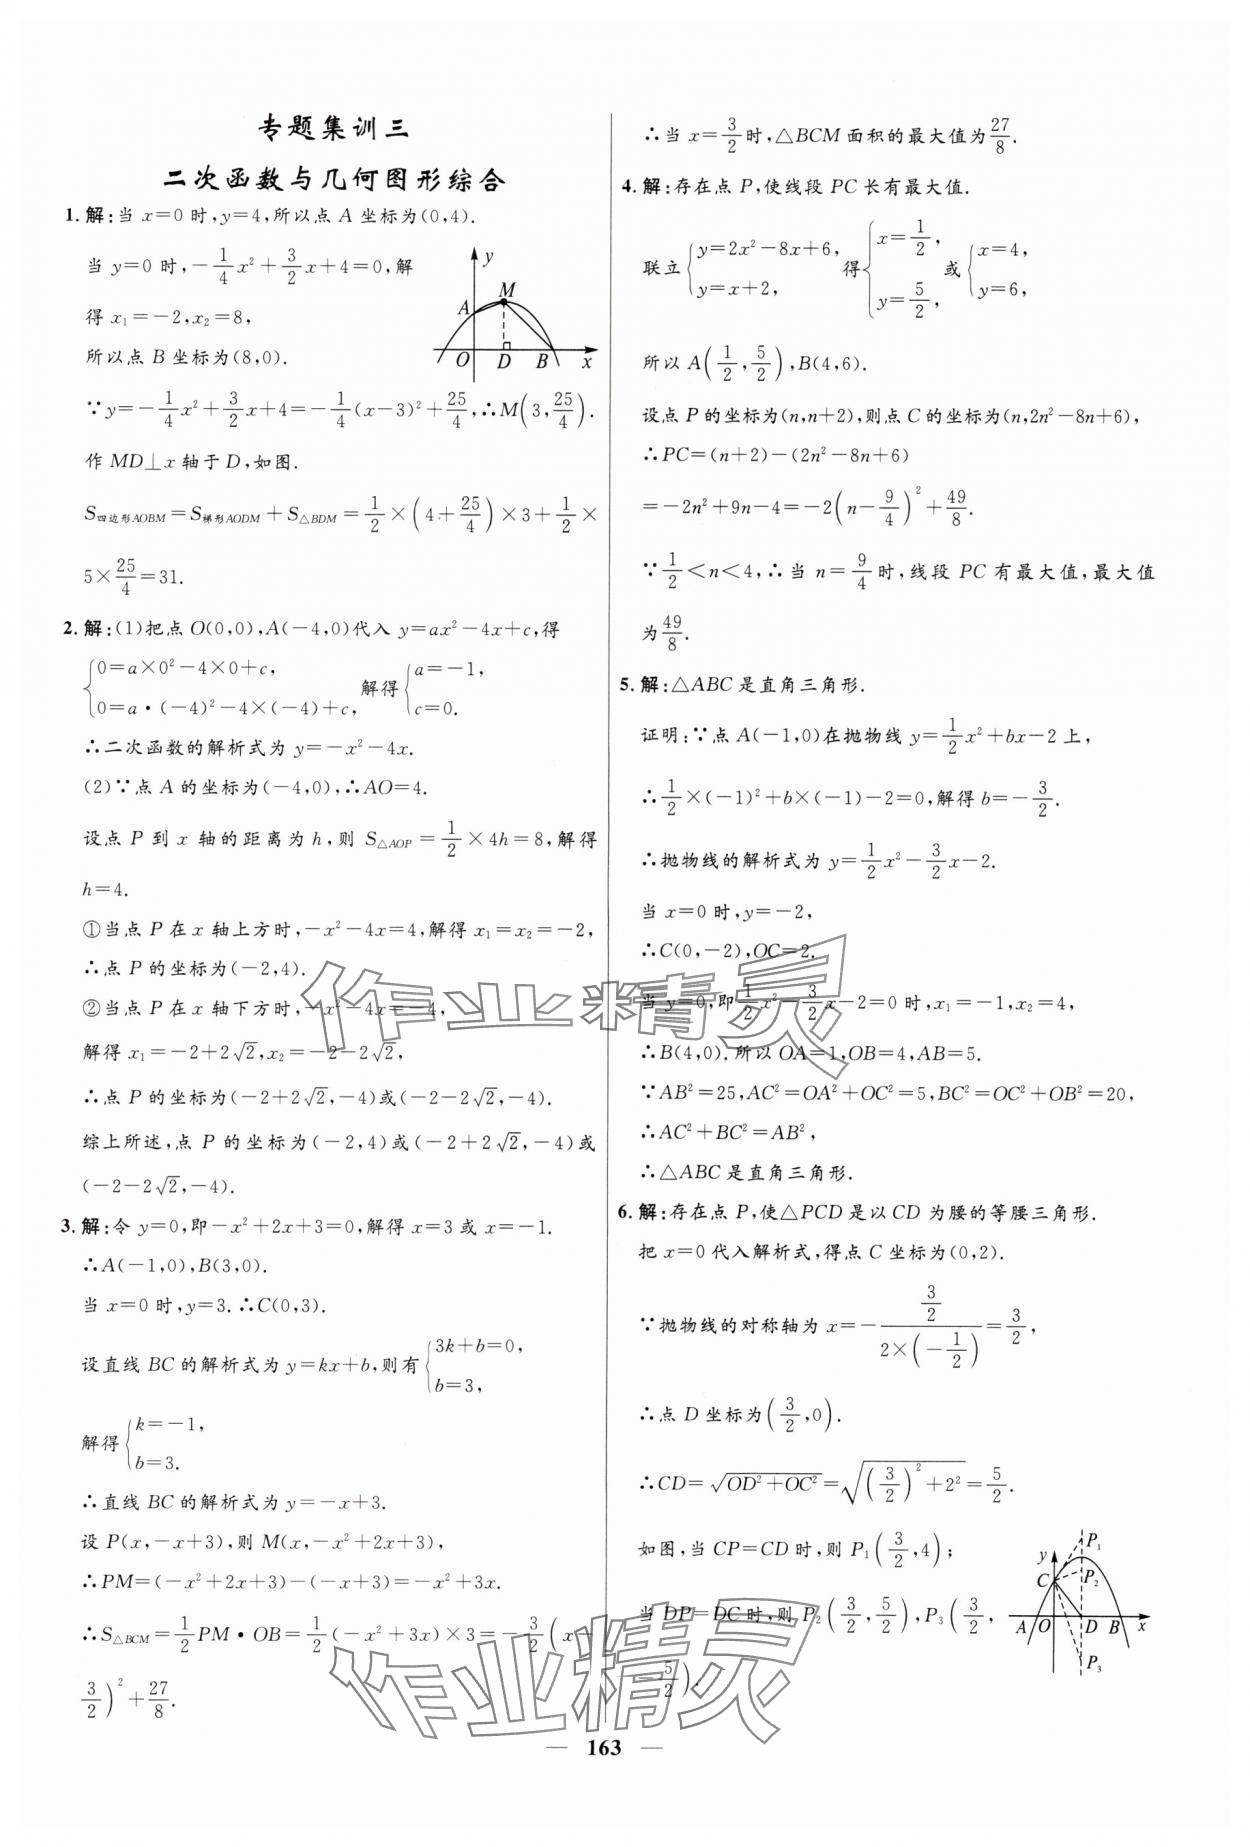 专题集训三
二次函数与几何图形综合
1. 解:当 x=0 时,y=4,所以点 A 坐标为(0,4).
当 y=0 时,-1/4x²+3/2x+4=0,解
得 x₁=-2,x₂=8,
所以点 B 坐标为(8,0).
y
A
M
O
D
B
x
∵y=-1/4x²+3/2x+4=-1/4(x-3)²+25/4,∴M(3,25/4).
作 MD⊥x 轴于 D,如图.
S四边形AOBM=S梯形AODM+S△BDM=1/2×(4+25/4)×3+1/2×
5×25/4=31.
2. 解:(1)把点 O(0,0),A(-4,0)代入 y=ax²-4x+c,得
{0=a×0²-4×0+c, 0=a•(-4)²-4×(-4)+c, 解得{a=-1, c=0.
∴二次函数的解析式为 y=-x²-4x.
(2)∵点 A 的坐标为(-4,0),∴AO=4.
设点 P 到 x 轴的距离为 h,则 S△AOP=1/2×4h=8,解得
h=4.
①当点 P 在 x 轴上方时,-x²-4x=4,解得 x₁=x₂=-2,
∴点 P 的坐标为(-2,4).
②当点 P 在 x 轴下方时,-x²-4x=-4,
解得 x₁=-2+2√2,x₂=-2-2√2,
∴点 P 的坐标为(-2+2√2,-4)或(-2-2√2,-4).
综上所述,点 P 的坐标为(-2,4)或(-2+2√2,-4)或
(-2-2√2,-4).
3. 解:令 y=0,即-x²+2x+3=0,解得 x=3 或 x=-1.
∴A(-1,0),B(3,0).
当 x=0 时,y=3.∴C(0,3).
设直线 BC 的解析式为 y=kx+b,则有{3k+b=0, b=3,
解得{k=-1, b=3.
∴直线 BC 的解析式为 y=-x+3.
设 P(x,-x+3),则 M(x,-x²+2x+3),
∴PM=(-x²+2x+3)-(-x+3)=-x²+3x.
∴S△BCM=1/2PM•OB=1/2(-x²+3x)×3=-3/2(x-
3/2)²+27/8.
∴当 x=3/2时,△BCM 面积的最大值为27/8.
4. 解:存在点 P,使线段 PC 长有最大值.
联立{y=2x²-8x+6, y=x+2, 得{x=1/2, y=5/2, 或{x=4, y=6,
所以 A(1/2,5/2),B(4,6).
设点 P 的坐标为(n,n+2),则点 C 的坐标为(n,2n²-8n+6),
∴PC=(n+2)-(2n²-8n+6)
=-2n²+9n-4=-2(n-9/4)²+49/8.
∵1/2<n<4,∴当 n=9/4时,线段 PC 有最大值,最大值
为49/8.
5. 解:△ABC 是直角三角形.
证明:∵点 A(-1,0)在抛物线 y=1/2x²+bx-2 上,
∴1/2×(-1)²+b×(-1)-2=0,解得 b=-3/2.
∴抛物线的解析式为 y=1/2x²-3/2x-2.
当 x=0 时,y=-2,
∴C(0,-2),OC=2.
当 y=0,即1/2x²-3/2x-2=0 时,x₁=-1,x₂=4,
∴B(4,0).所以 OA=1,OB=4,AB=5.
∵AB²=25,AC²=OA²+OC²=5,BC²=OC²+OB²=20,
∴AC²+BC²=AB²,
∴△ABC 是直角三角形.
6. 解:存在点 P,使△PCD 是以 CD 为腰的等腰三角形.
把 x=0 代入解析式,得点 C 坐标为(0,2).
∵抛物线的对称轴为 x=-(3/2)/(2×(-1/2))=3/2,
∴点 D 坐标为(3/2,0).
∴CD=√(OD²+OC²)=√((3/2)²+2²)=5/2.
如图,当 CP=CD 时,则 P₁(3/2,4);
当 DP=DC 时,则 P₂(3/2,5/2),P₃(3/2,
-5/2).
y
P₁
P₂
C
A
O
D
B
x
P₃
作业精灵
作业精灵
163